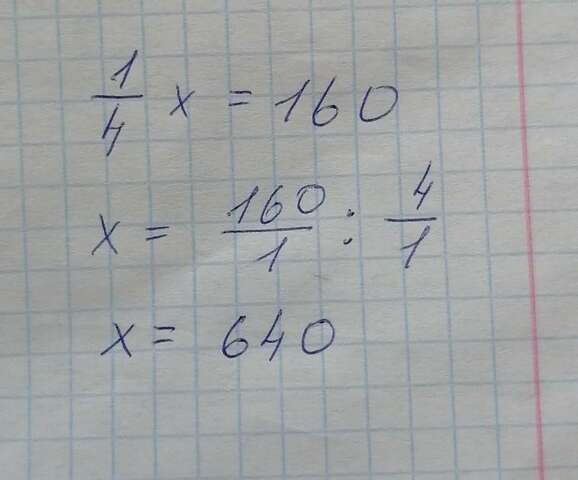 1/4 x = 160
x = 160/1 : 4/1
x = 640